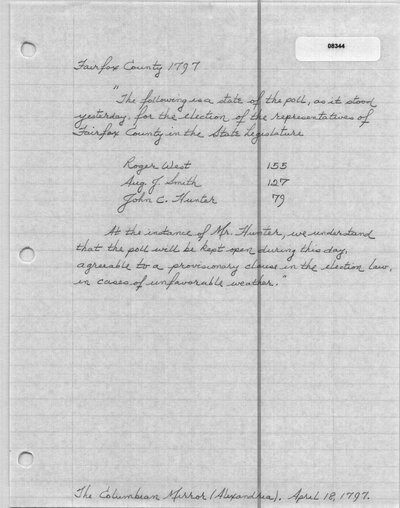 08344
Fairfax County 1797
"The following is a state of the poll, as it stood
yesterday, for the election of the representatives of
Fairfax County in the State Legislature
Roger West 155
Aug. J. Smith 127
John C. Hunter 79
At the instance of Mr. Hunter, we understand
that the poll will be kept open during this day,
agreeable to a provisionary clause in the election law,
in cases of unfavorable weather."
The Columbian Mirror (Alexandria). April 18, 1797.